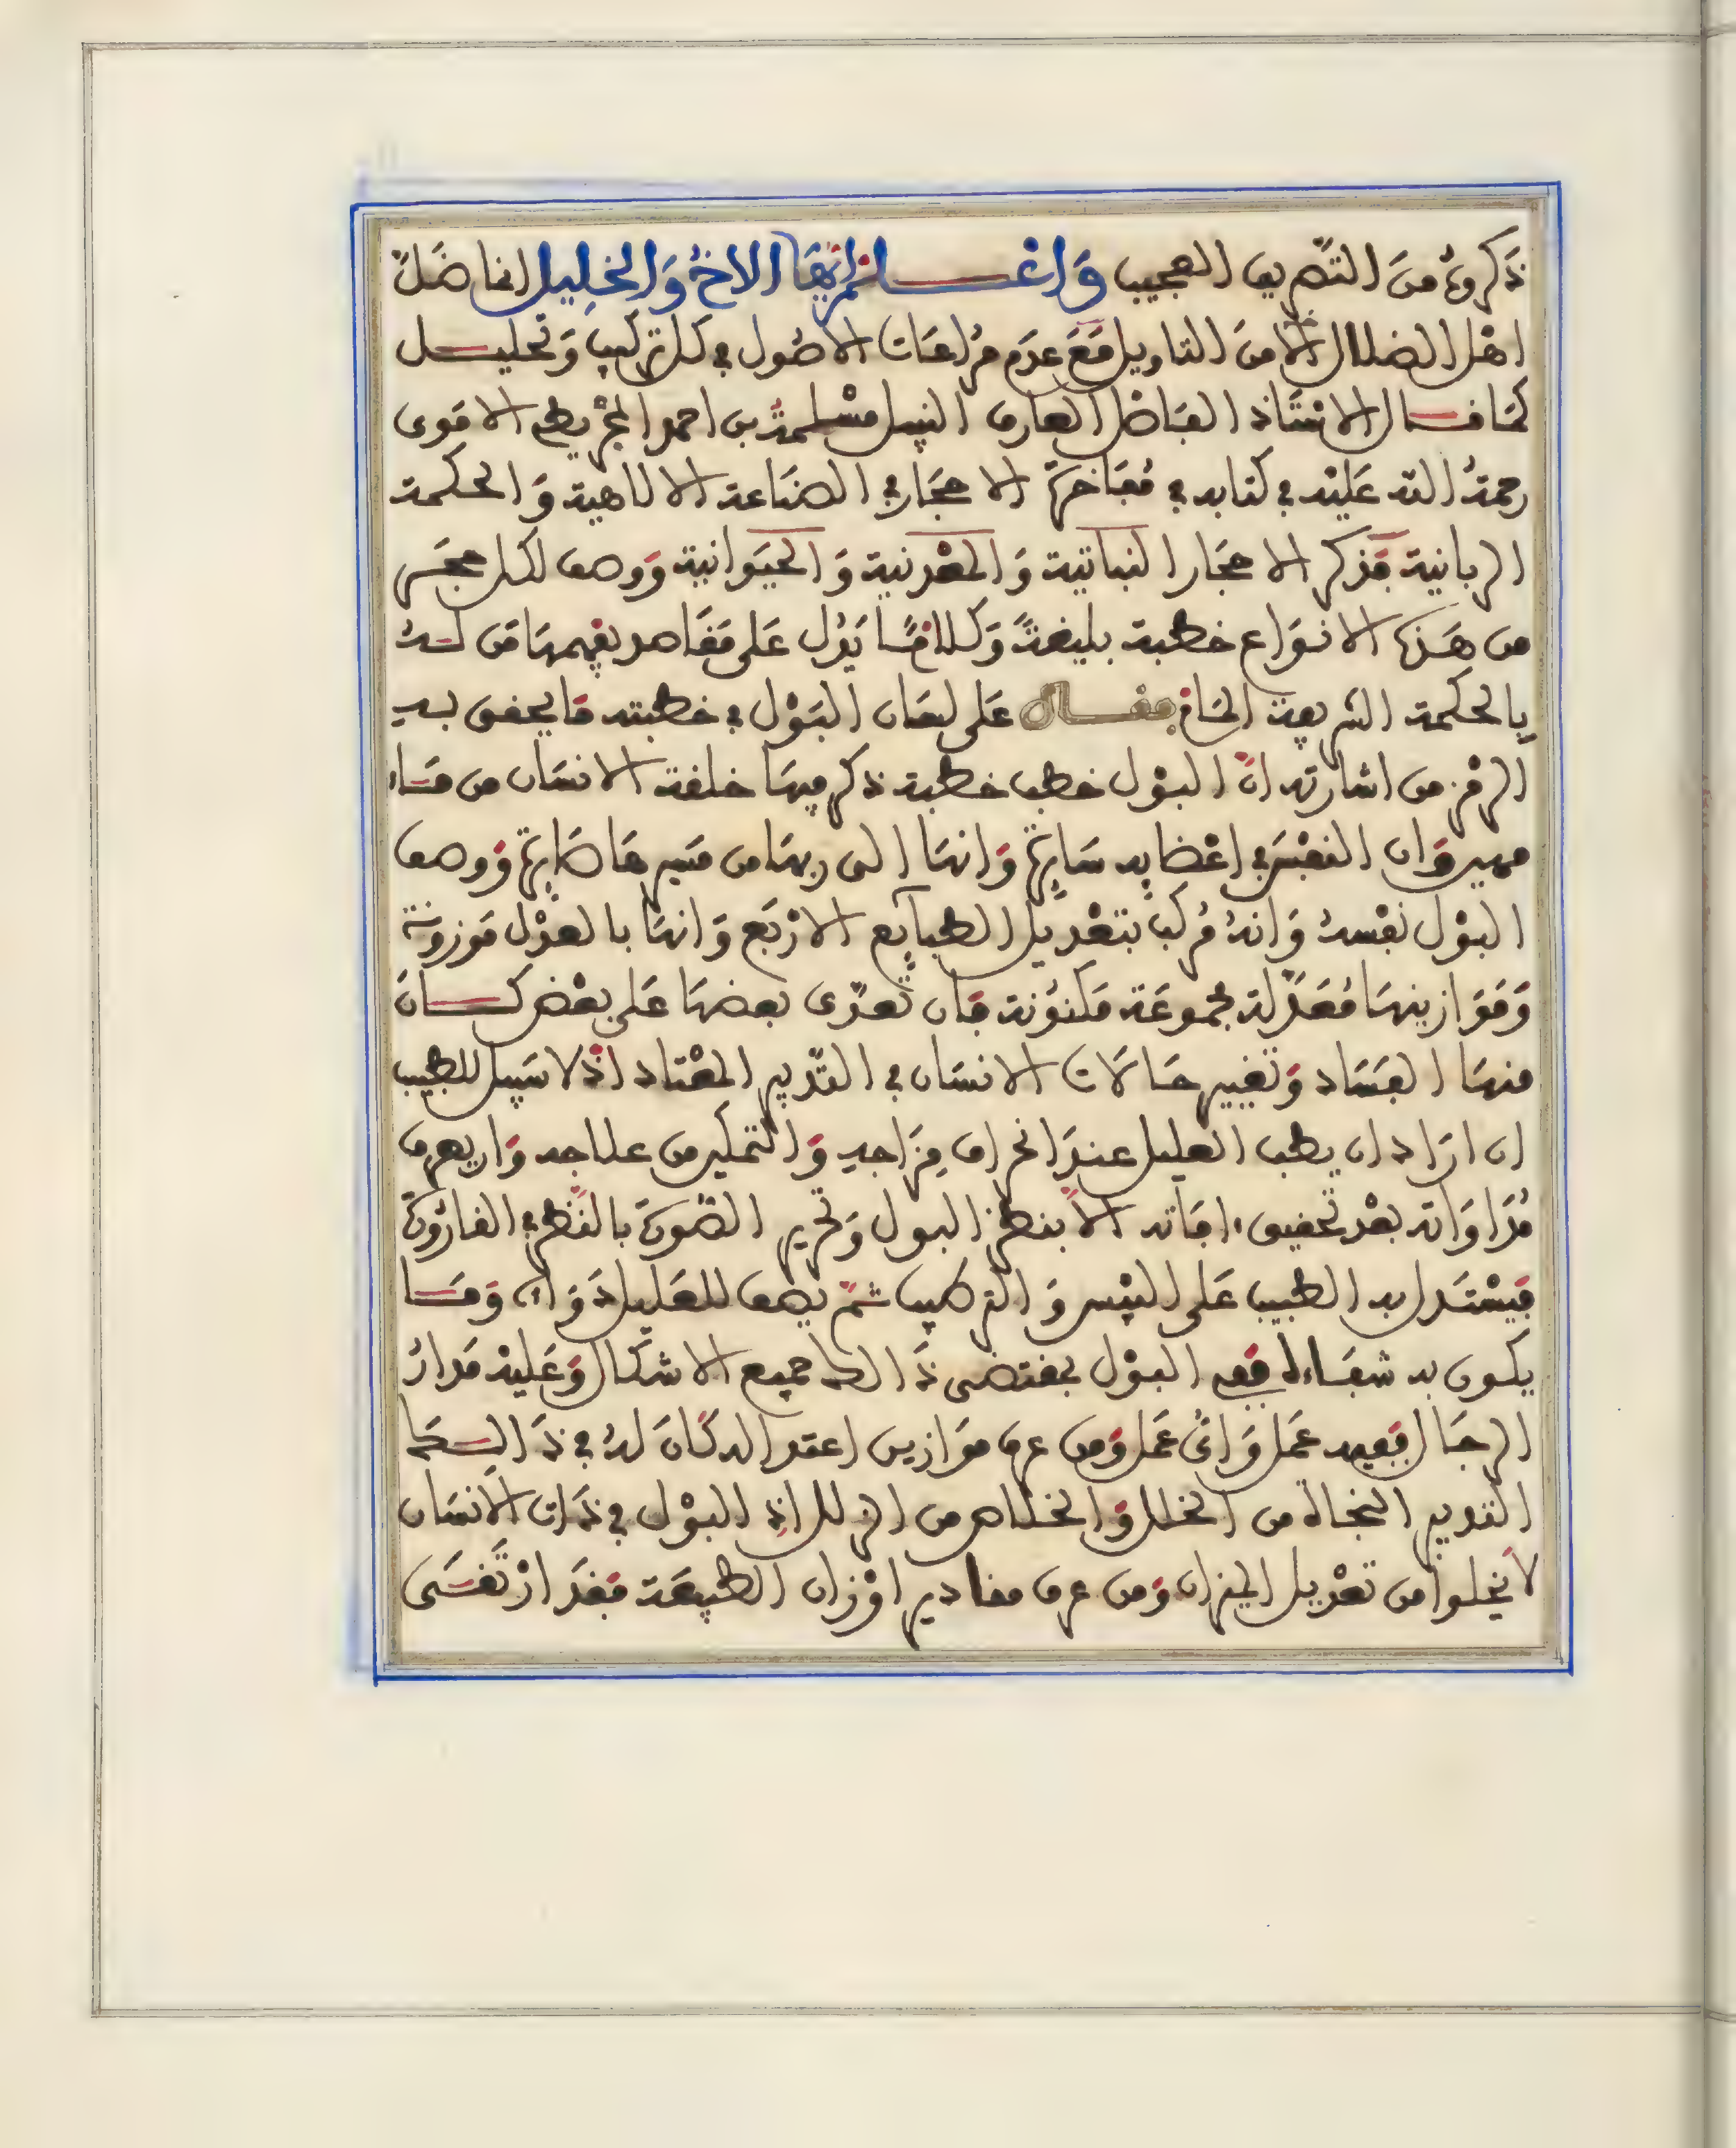 ذكروه من التصريف العجيب وَاعْلم ايها الاخُ وَالخلِيل انما ضَلَّ
اهل الضلال الا من التاويل مَعَ عدَم مُراعَات الاصُول في كل تركيب وَتحليل
كمَا قال الاستَاذ الفاضل العارف النبيل مسْلمة بن احمد المجْريطي الاموى
رحمةُ الله عَليْه في كتابه في مُفَاخرَة الاحجَار في الصنَاعة الالاهية وَالحكمة
الربانية فَذكر الاحجَار النبَاتية وَالمعْدنية وَالحيَوانية وَوصف لكل حجَر
من هَذه الانوَاع خطبة بليغةً وَكلامًا يَدُل عَلى مَقَاصد يفهمهَا مَن لهُ
بِالحكمة الشريعة الحَاق فقال عَلى لسَان البَوْل في خطبته مَا يحقق بهِ
الرمْز من اشارته انَّ البوْل خطب خطبة ذكر فيهَا خلقة الانسَان من مَاء
مهين وَان النفْسَ في اعْضَايه سَايرَة وَانهَا الى ربهَا من مَسيرهَا صَايرَة وَوصف
البوْل نفْسهُ وَانهُ مُركب بتعْديل الطبايع الارْبَع وَانهَا بالعدْل مَوزونة
وَمَوازينهَا مُعَدَّلة مجموعَة مَكنوُنة فَان تعدَّى بعضهَا عَلى بعْض كَانَ
منهَا الفسَاد وَتغيير حَالَات الانسَان في التدْبير المعْتاد اذْ لا سَبيل للطبيب
ان ارَاد ان يطب العليل عندَ انحراف مِزَاجهِ وَالتمكين من علاجه وَان يعرف
مُدَاوَاته بعْد تحقيق افَاته الاَّ بنظر البول وَتحرير الصُّورَة بالنَّظر في القارُورَة
فيسْتَدل به الطبيب عَلى اليبْس وَالتركيب ثمَّ يصف للعَليل دَوَاءه وَمَا
يكون به شفَاءه ففى البوْل بمقتضى ذَالك جميع الاشكَال وَعَليْه مَدارُ
الرجَال ففيه عمَل وَاىُّ عَمل وَمن عرف موَازين اعتدَاله كَانَ لهُ في ذَالك
التدبير النجَاة من الخلل وَالخلاص من الزلل اذِ البوْل في ذَات الانسَان
لاَ يخلوا من تعْديل الميزان وَمن عرف مقادير اوْزان الطبيعَة فقدَ ارْتقَى